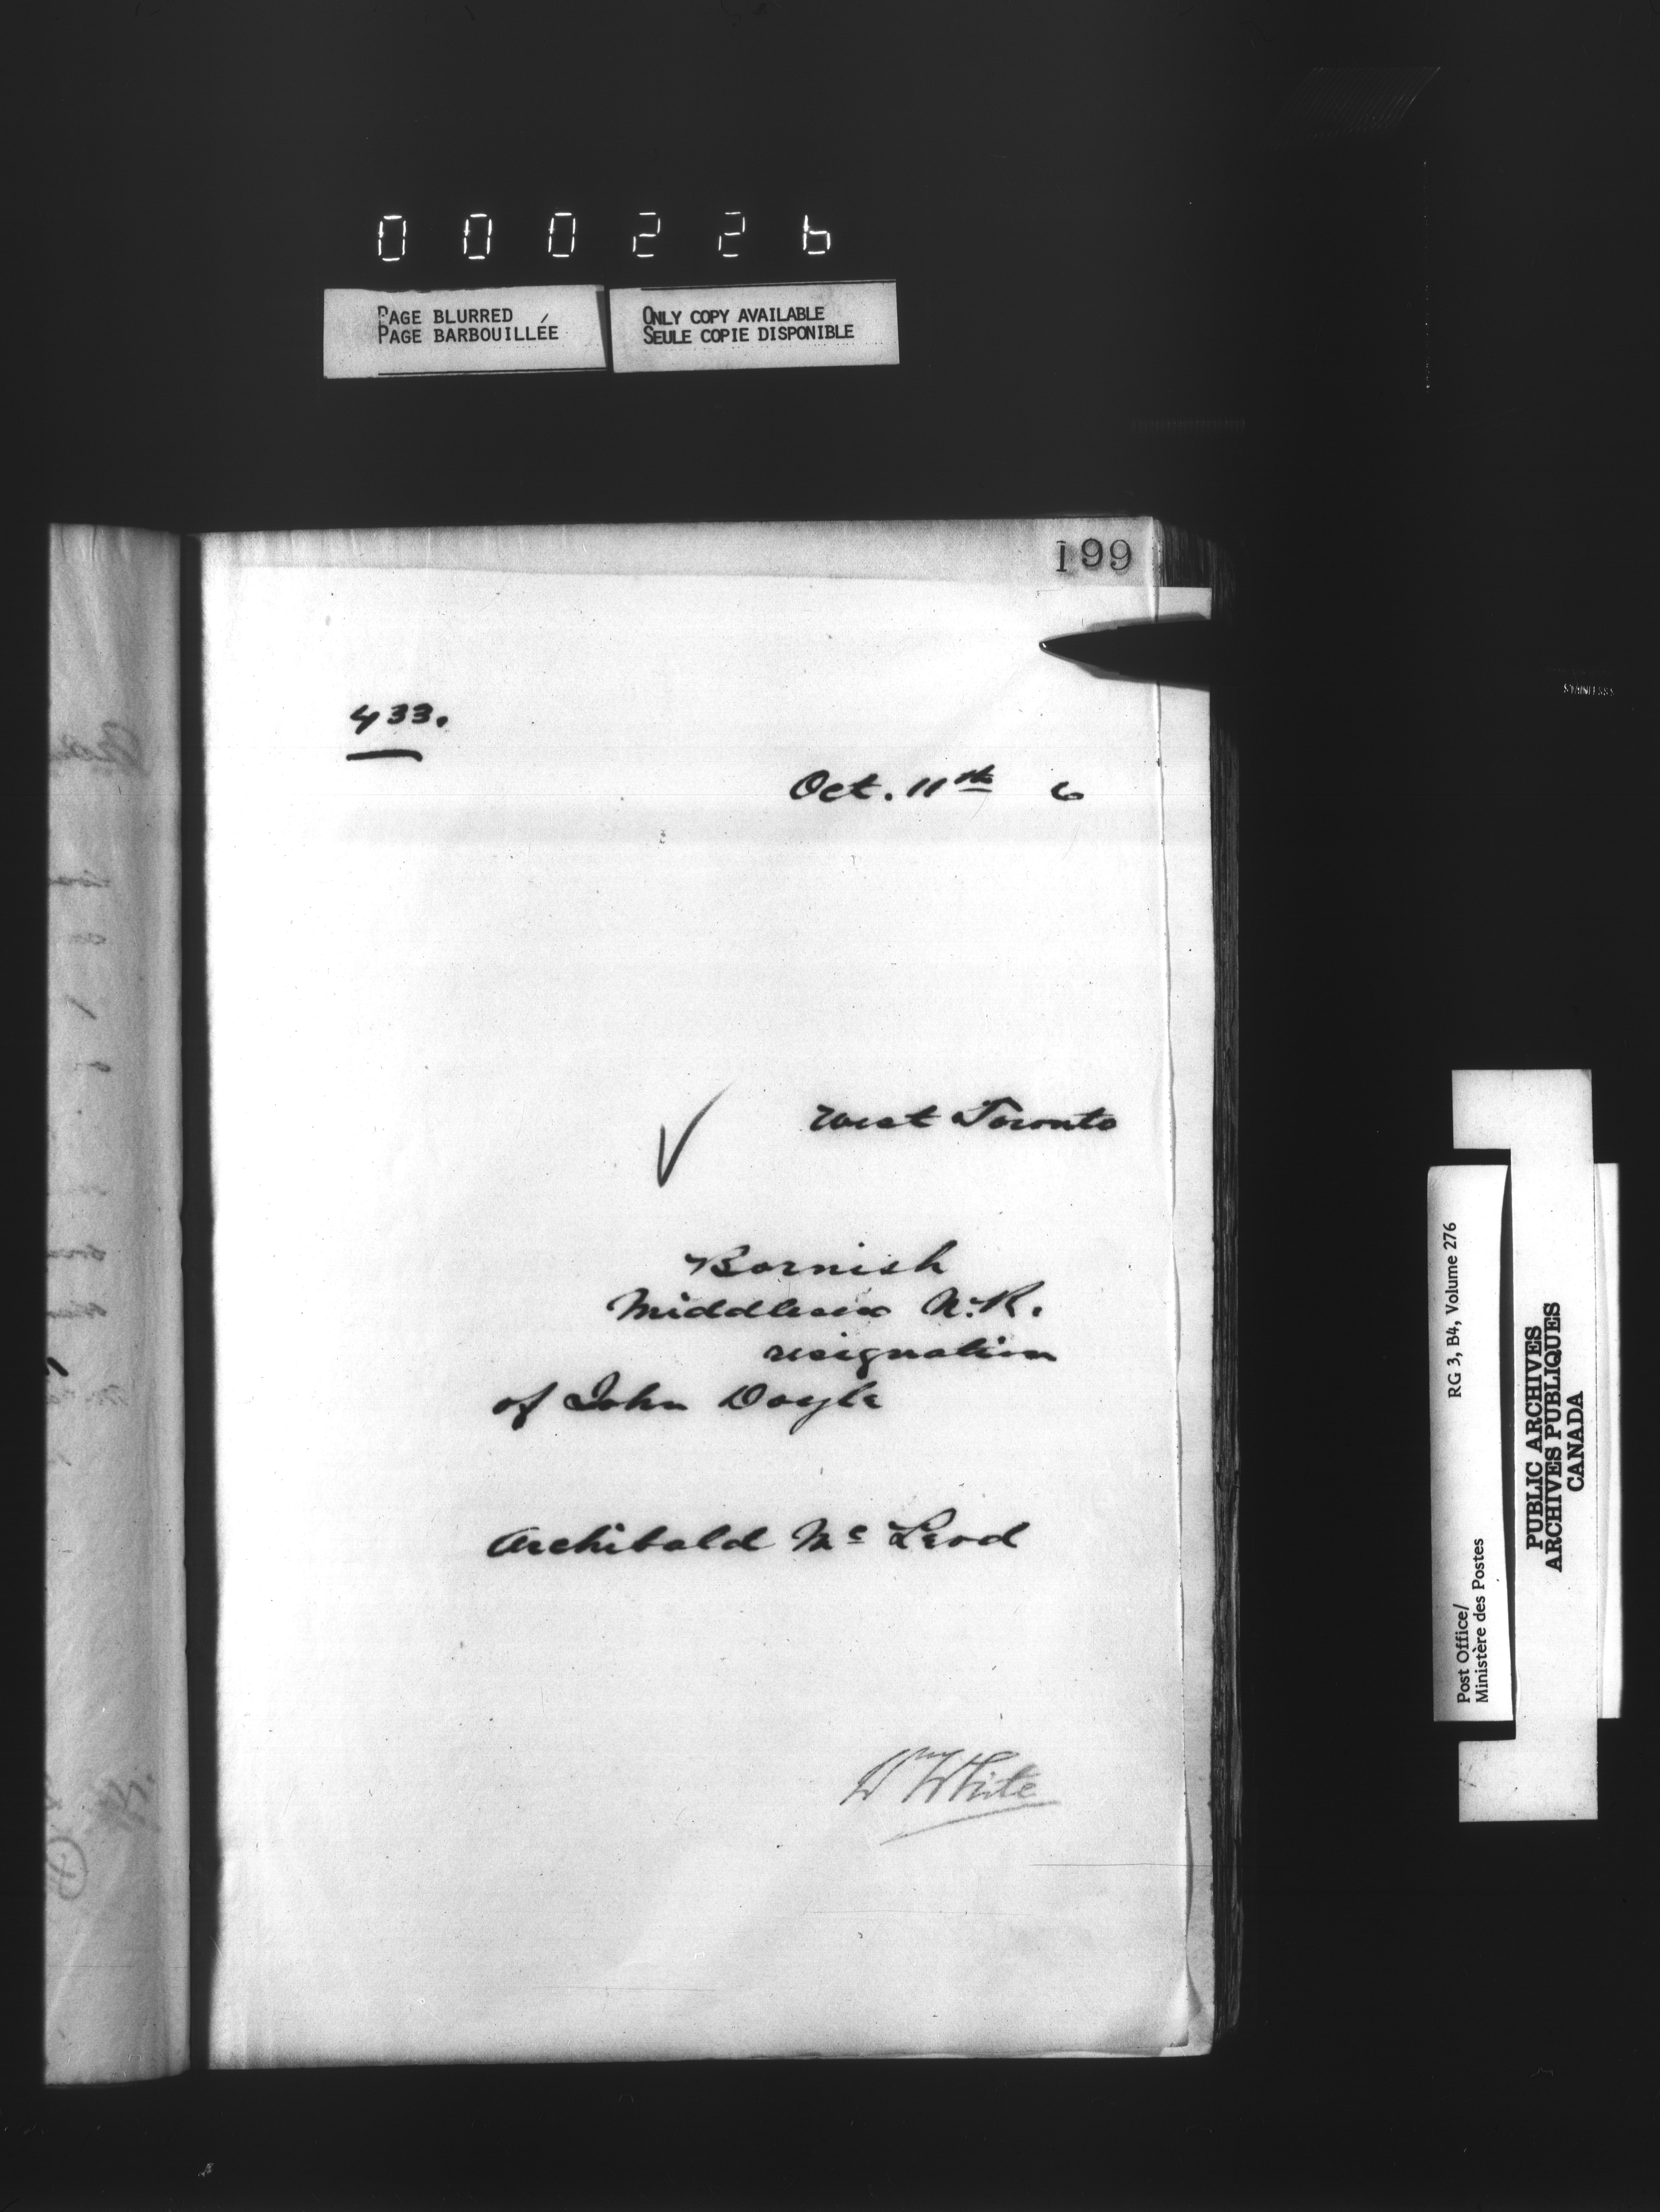 000226
PAGE BLURRED
PAGE BARBOUILLÉE
ONLY COPY AVAILABLE
SEULE COPIE DISPONIBLE
199
433.
Oct. 11th 6
West Toronto
Bornish
Middlesex N.R.
resignation
of John Doyle
Archibald Mc Leod
Wm White
STAINLESS
Post Office/
Ministère des Postes
RG 3, B4, Volume 276
PUBLIC ARCHIVES
ARCHIVES PUBLIQUES
CANADA